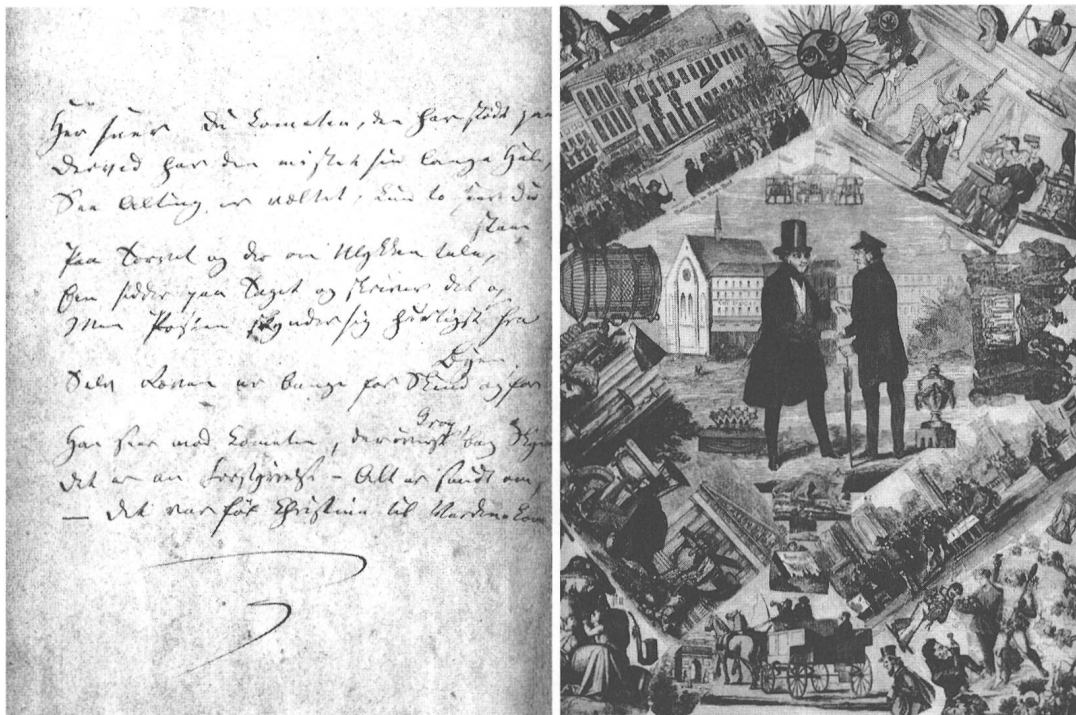 Her seer du Kometen, den har stødt paa
derved har den mistet sin lange Hale,
See Alting er væltet, kun to seer du
staae
Paa Torvet og der om Ulykken tale,
Een sidder paa Taget og skriver det op
Men Posten skynder sig hurtigst fra
Byen
Selv Løven er bange for Skind og for
Krop
Han seer mod Kometen, der bag Skyen
det er en Forstyrrelse - Alt er sandt om,
— det var før Christine til Verden kom